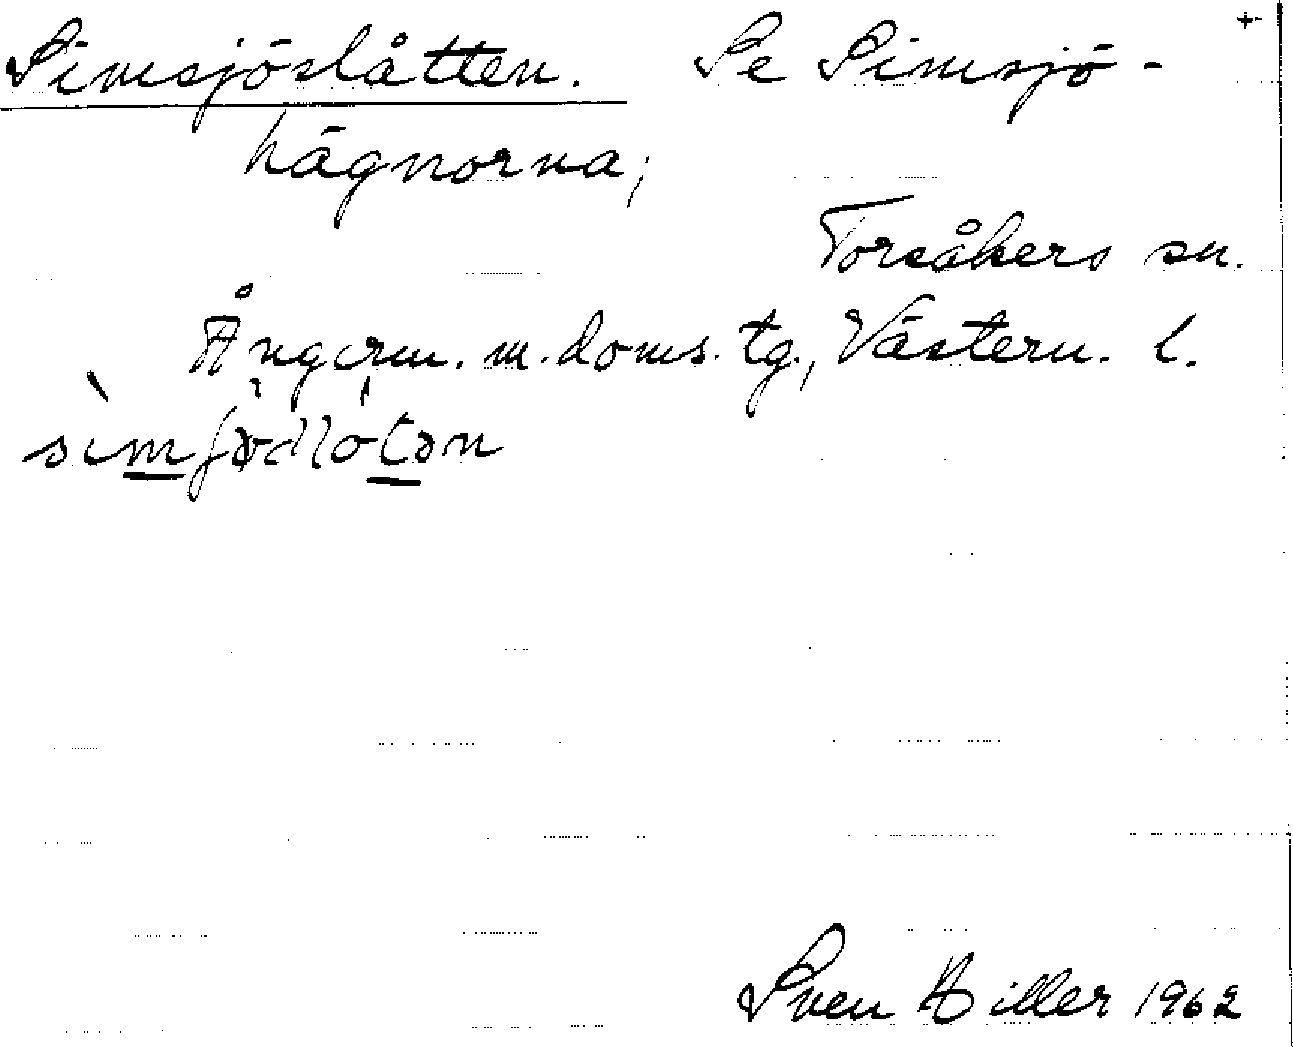 Simsjöslåtten. Se Simsjö-
hägnorna;
Torsåkers sn.
Ångerm. m. doms. tg., Västern. l.
Sven Hiller 1962